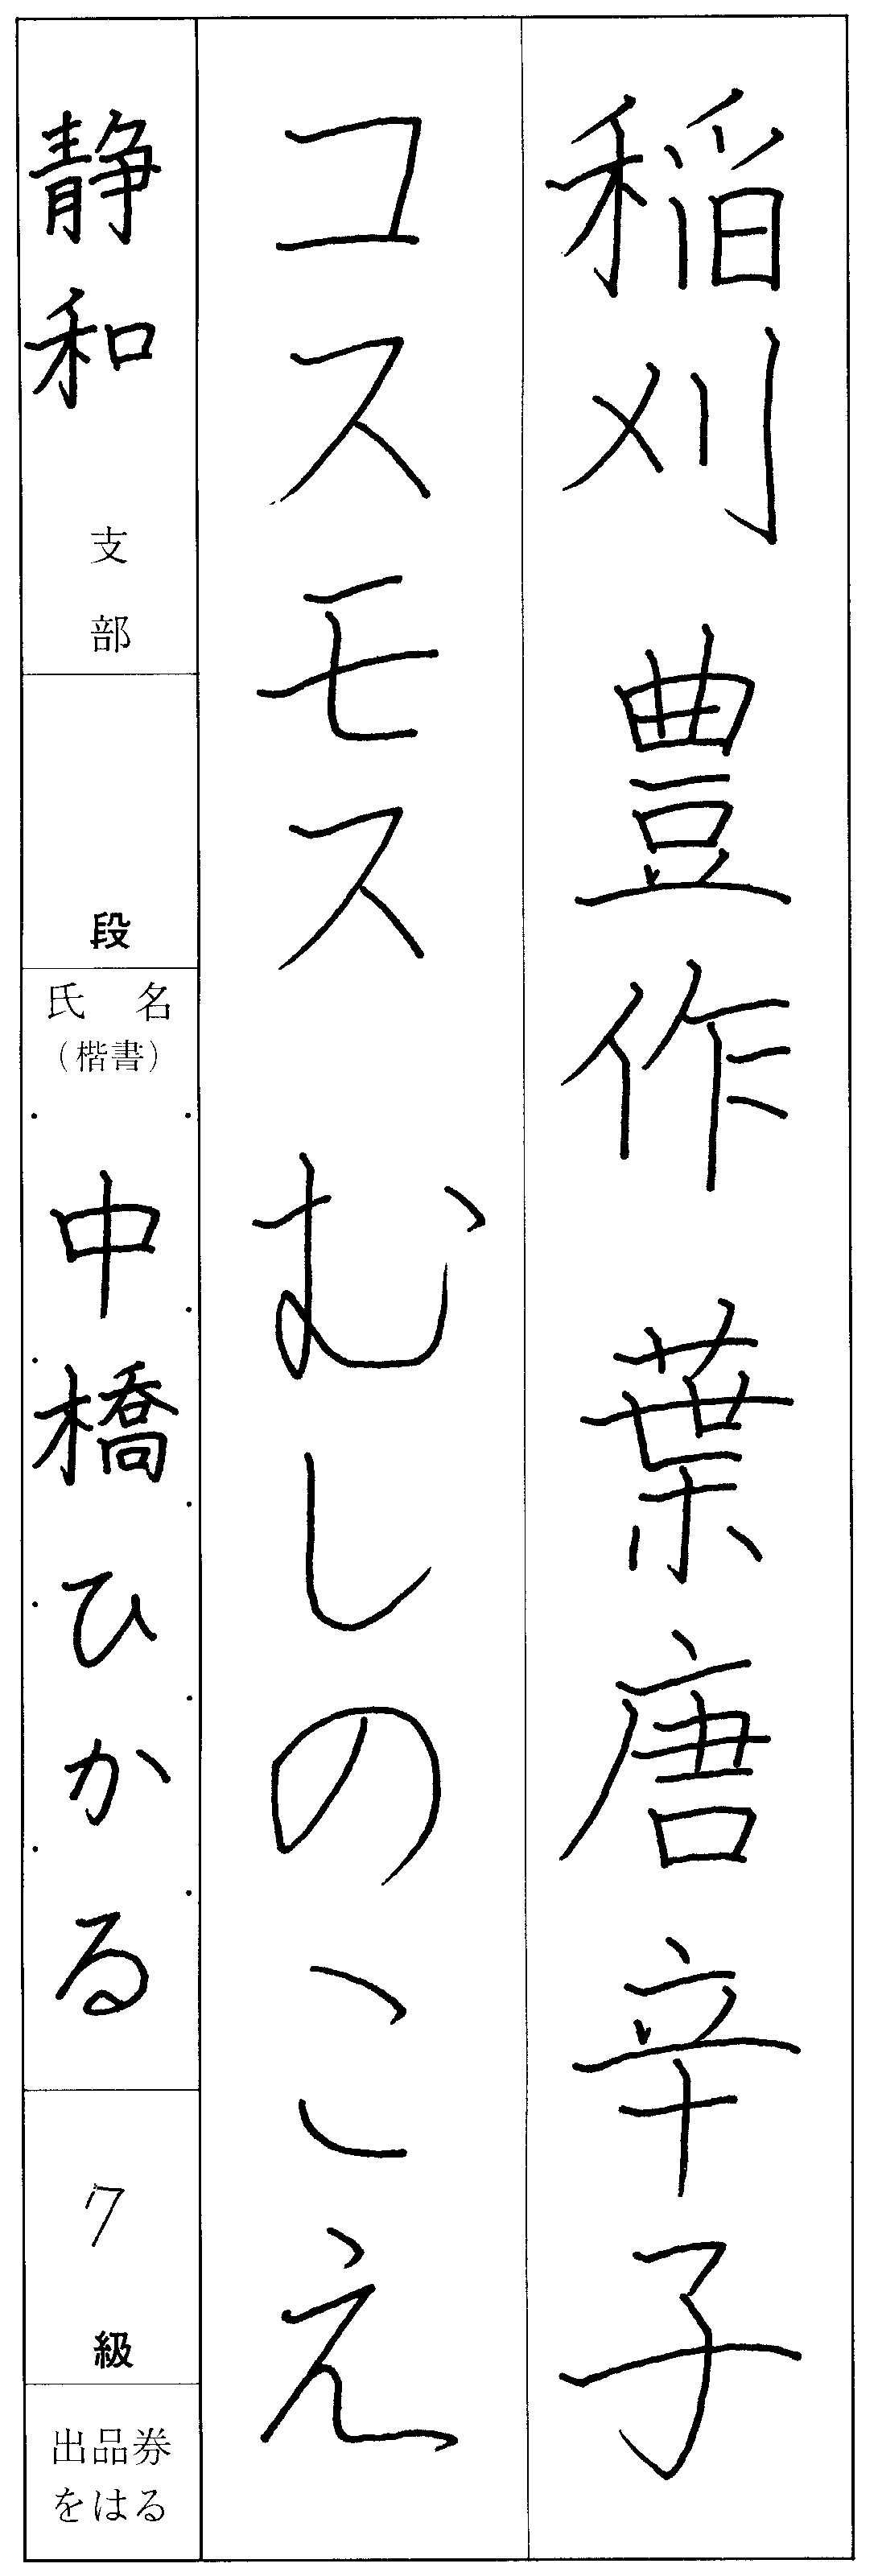 稲刈 豊作 葉唐辛子
コスモス むしのこえ
静和 支部
段
氏名
(楷書)
中橋ひかる
7 級
出品券
をはる